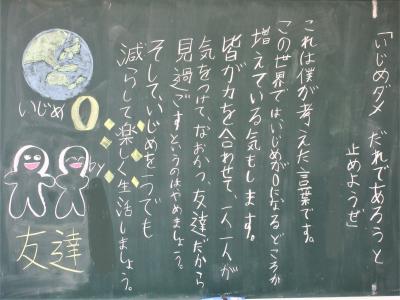 「いじめダメ だれであろうと
止めようぜ」
これは僕が考えた言葉です。
この世界では、いじめが0になるどころか
増えている気もします。
皆が力を合わせて、一人一人が
気をつけて、なおかつ、友達だから
見過ごすというのはやめましょう。
そして、いじめを一つでも
減らして楽しく生活しましょう。
いじめ0
by
友達